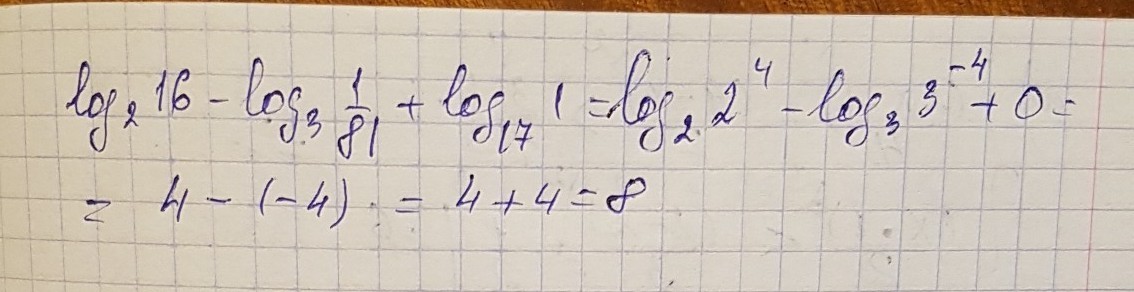 log₂ 16 - log₃ 1/81 + log₁₇ 1 = log₂ 2⁴ - log₃ 3⁻⁴ + 0 =
= 4 - (-4) = 4 + 4 = 8